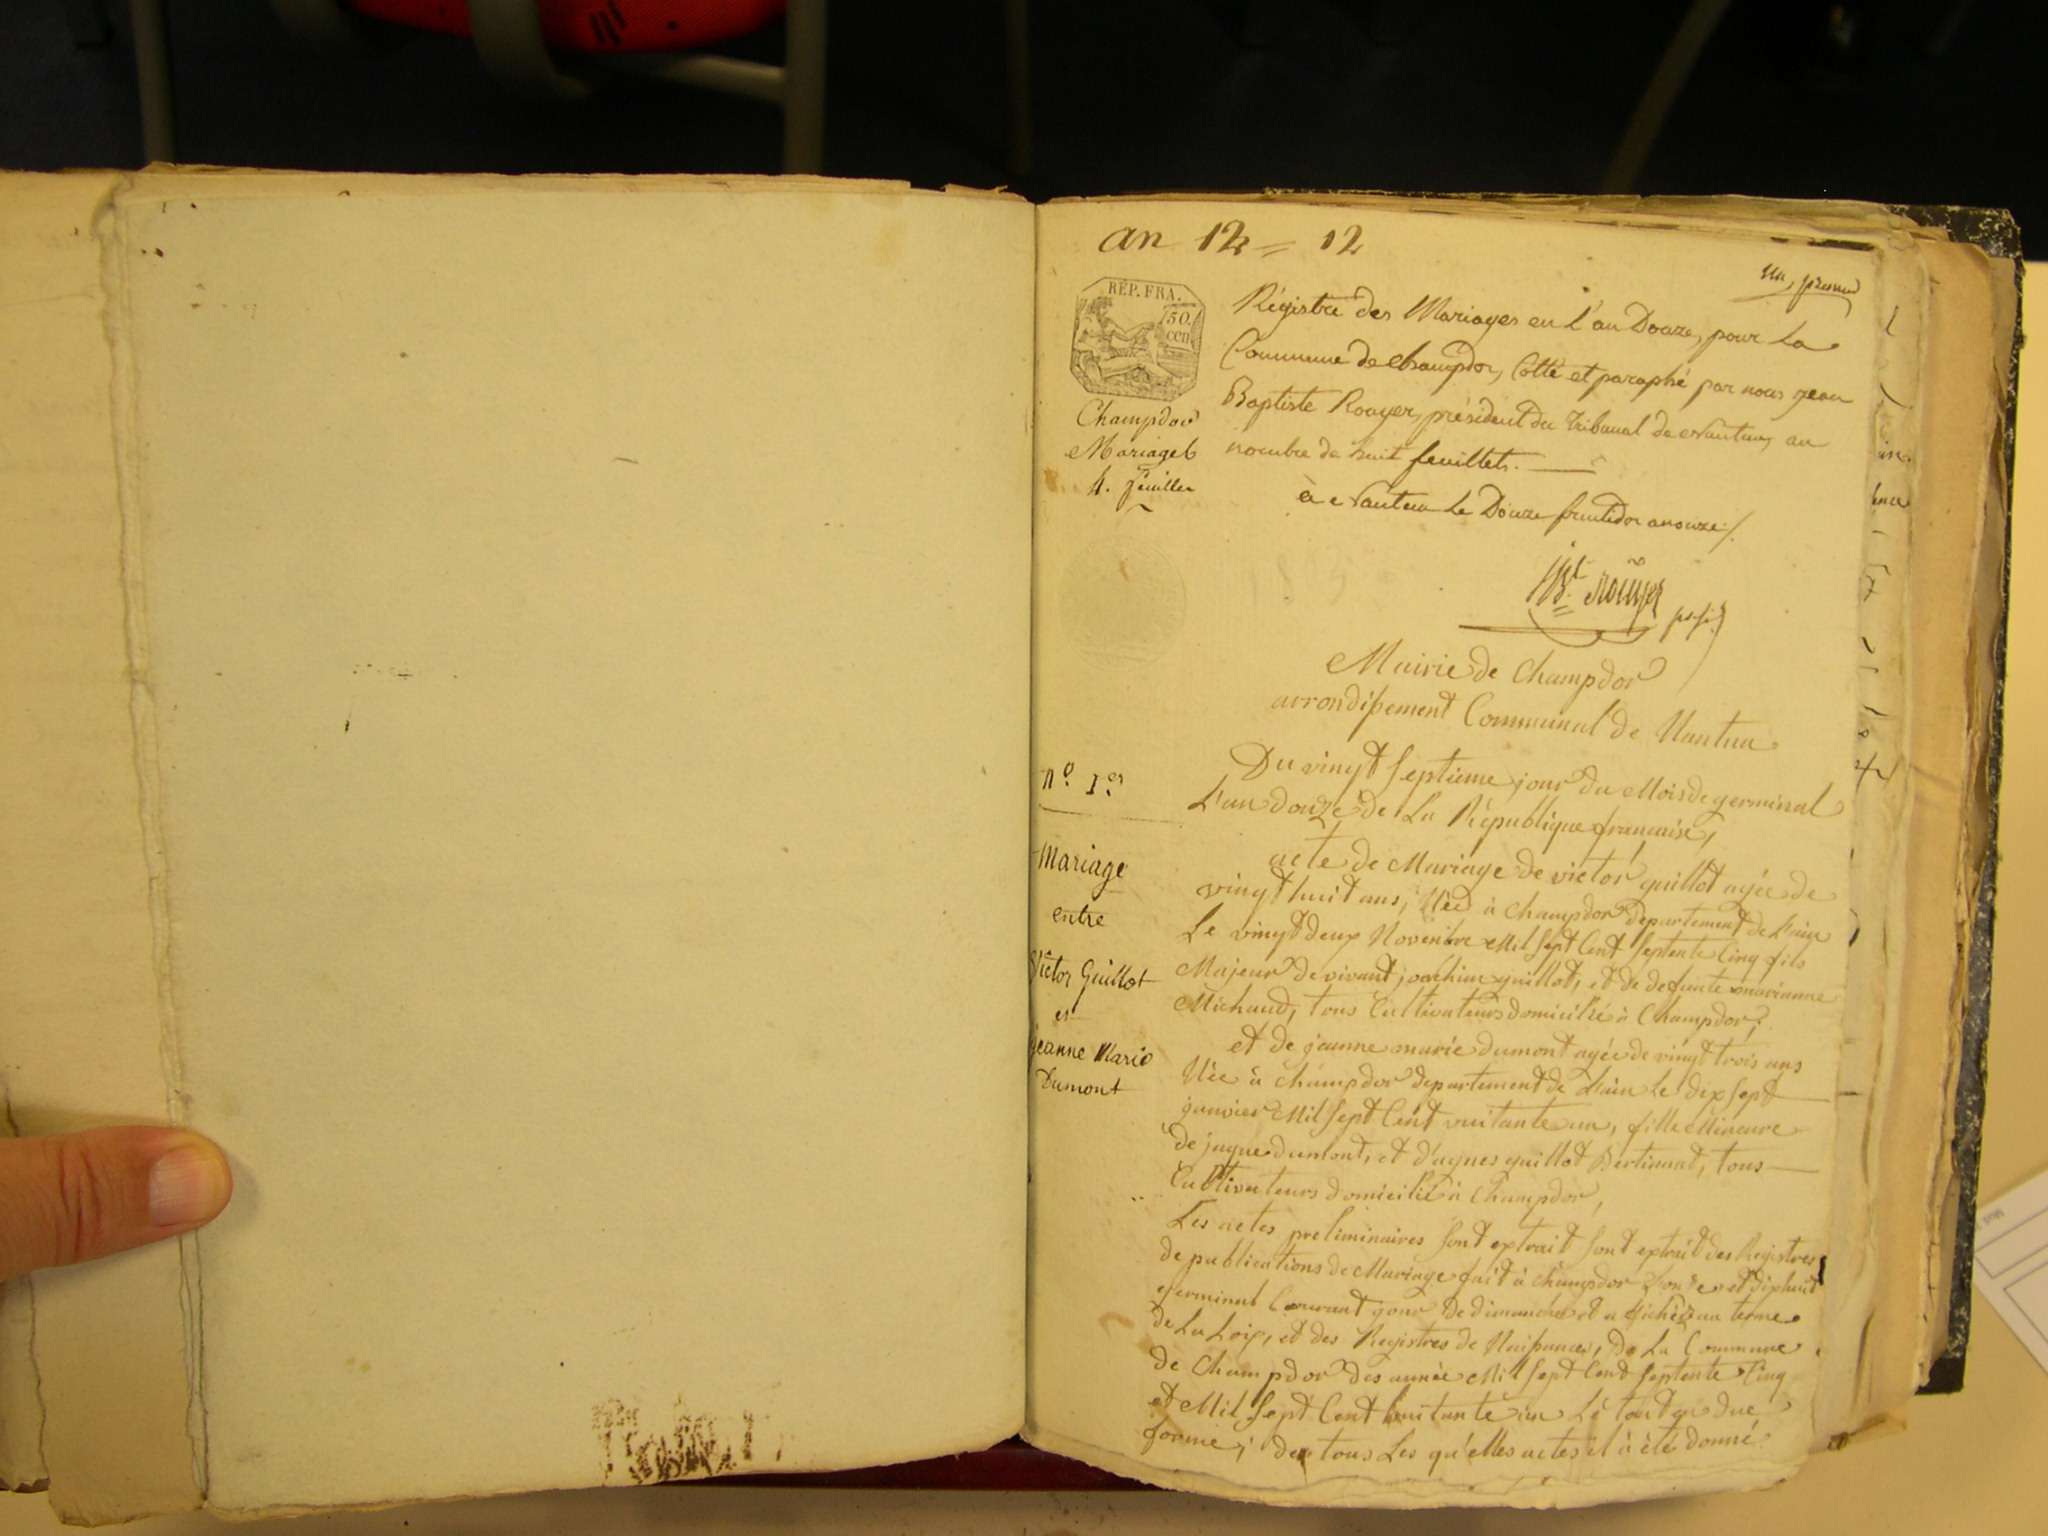 an 12 = 12
un, premier
RÉP. FRA.
50.
cen
Champdor
Mariages
4. feuilles
Régistre des Mariages en l'an Douze, pour La
Commune de champdor, Cotté et paraphé par nous jean
Baptiste Rouyer, président du Tribunal de Nantua, au
nombre de huit feuillets.
à Nantua Le Douze fructidor an onze./.
JBt. Rouyer
Mairie de Champdor
arrondissement Communal de Nantua
n° 1er
Du vingt Septieme jour du Mois de germinal
L'an douze de La République française,
Mariage
entre
Victor Guillot
et
Jeanne Marie
Dumont
acte de Mariage de victor guillot agée de
vingt huit ans, Née à Champdor departement de L'ain
Le vingt deux Novembre Mil Sept Cent Septente Cinq fils
Majeur de vivant joachim guillot, et de defunte marianne
Michaud, tous Cultivateurs domicilié à Champdor;
et de jeanne marie dumont agée de vingt trois ans
Née à Champdor departement de L'ain Le dix Sept
janvier Mil Sept Cent uuitante un, fille Mineure
de jaque dumont, et d'agnes guillot Bertinand, tous
Cultivateurs domicilié à Champdor,
Les actes preliminaires Sont extrait Sont extrait des Registres
de publications de Mariage fait à Champdor Lonze et dixhuit
germinal Courant jour de dimanche et affichéz au terme
de La Loix, et des Registres de Naissances, de La Commune
de Champdor des année Mil Sept Cent Septente Cinq
et Mil Sept Cent huitante un Le tout en due
forme; de tous Les qu'elles actes il à été donné